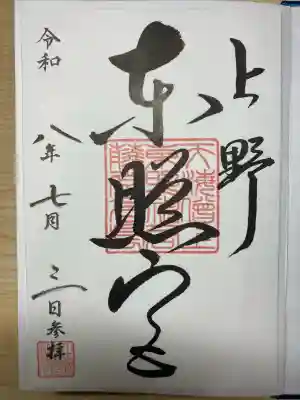 上野
東照宮
令和八年七月三日参拝